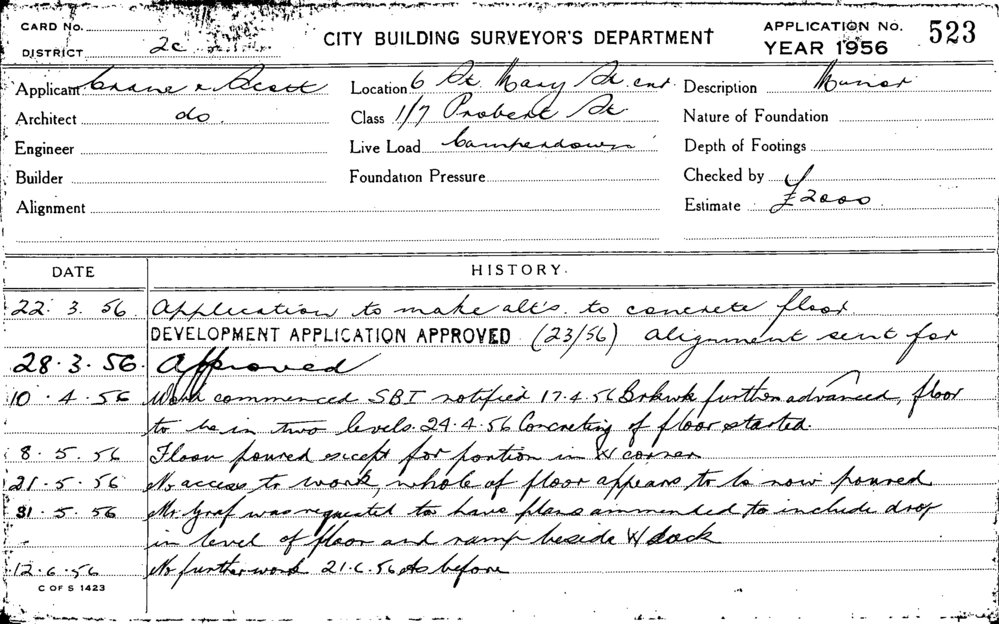 CARD No.
DISTRICT 2c
CITY BUILDING SURVEYOR'S DEPARTMENT
APPLICATION No. 523
YEAR 1956
Applicant Crane & Scott
Location 6 St. Mary St. cnr
Description Minor
Architect do.
Class 1/7 Probert St
Nature of Foundation
Engineer
Live Load Camperdown
Depth of Footings
Builder
Foundation Pressure
Checked by
Alignment
Estimate £2000
DATE HISTORY.
22. 3. 56 Application to make alt's. to concrete floor.
DEVELOPMENT APPLICATION APPROVED (23/56) Alignment sent for
28. 3. 56. Approved
10. 4. 56 Work commenced SBI notified 17.4.56 Brkwk further advanced, floor
to be in two levels. 24.4.56 Concreting of floor started.
8. 5. 56 Floor poured except for portion in W corner
21. 5. 56 No access to work, whole of floor appears to be now poured
31. 5. 56 Mr. Graf was requested to have plans ammended to include drop
in level of floor and ramp beside W dock
12. 6. 56 No further work 21.6.56 As before
C OF S 1423